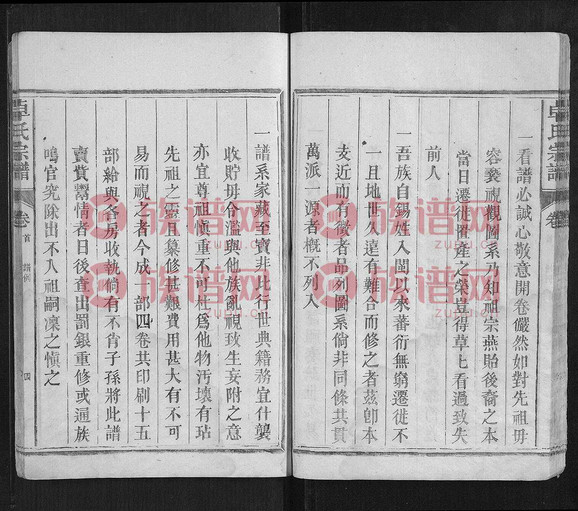 卓氏宗譜
卷
一看譜必誠心敬意開卷儼然如對先祖毋
容褻視觀圖系乃知祖宗燕貽後裔之本
當日遷徙闢產之榮豈得草上看過致失
前人
一吾族自錫姓入閩以來蕃衍無窮遷徙不
一且地世久遠有難合而修之者茲卽本
支近而有徵者品列圖系倘非同條共貫
萬派一源者概不列入
一譜系家藏至寶非比行世典籍務宜什襲
收貯毋令濫與他族亂視致生妄附之意
亦宜尊祖慎重不可杜爲他物汚壞有玷
先祖之靈且纂修甚艱費用甚大有不可
易而視之者今成一部四卷共印刷十五
部給與各房收執倘有不肖子孫將此譜
賣費鬻情者日後查出罰銀重修或通族
鳴官究除出不入祖嗣凜之慎之
卓氏宗譜
卷首
四
族谱网
zupu.cn